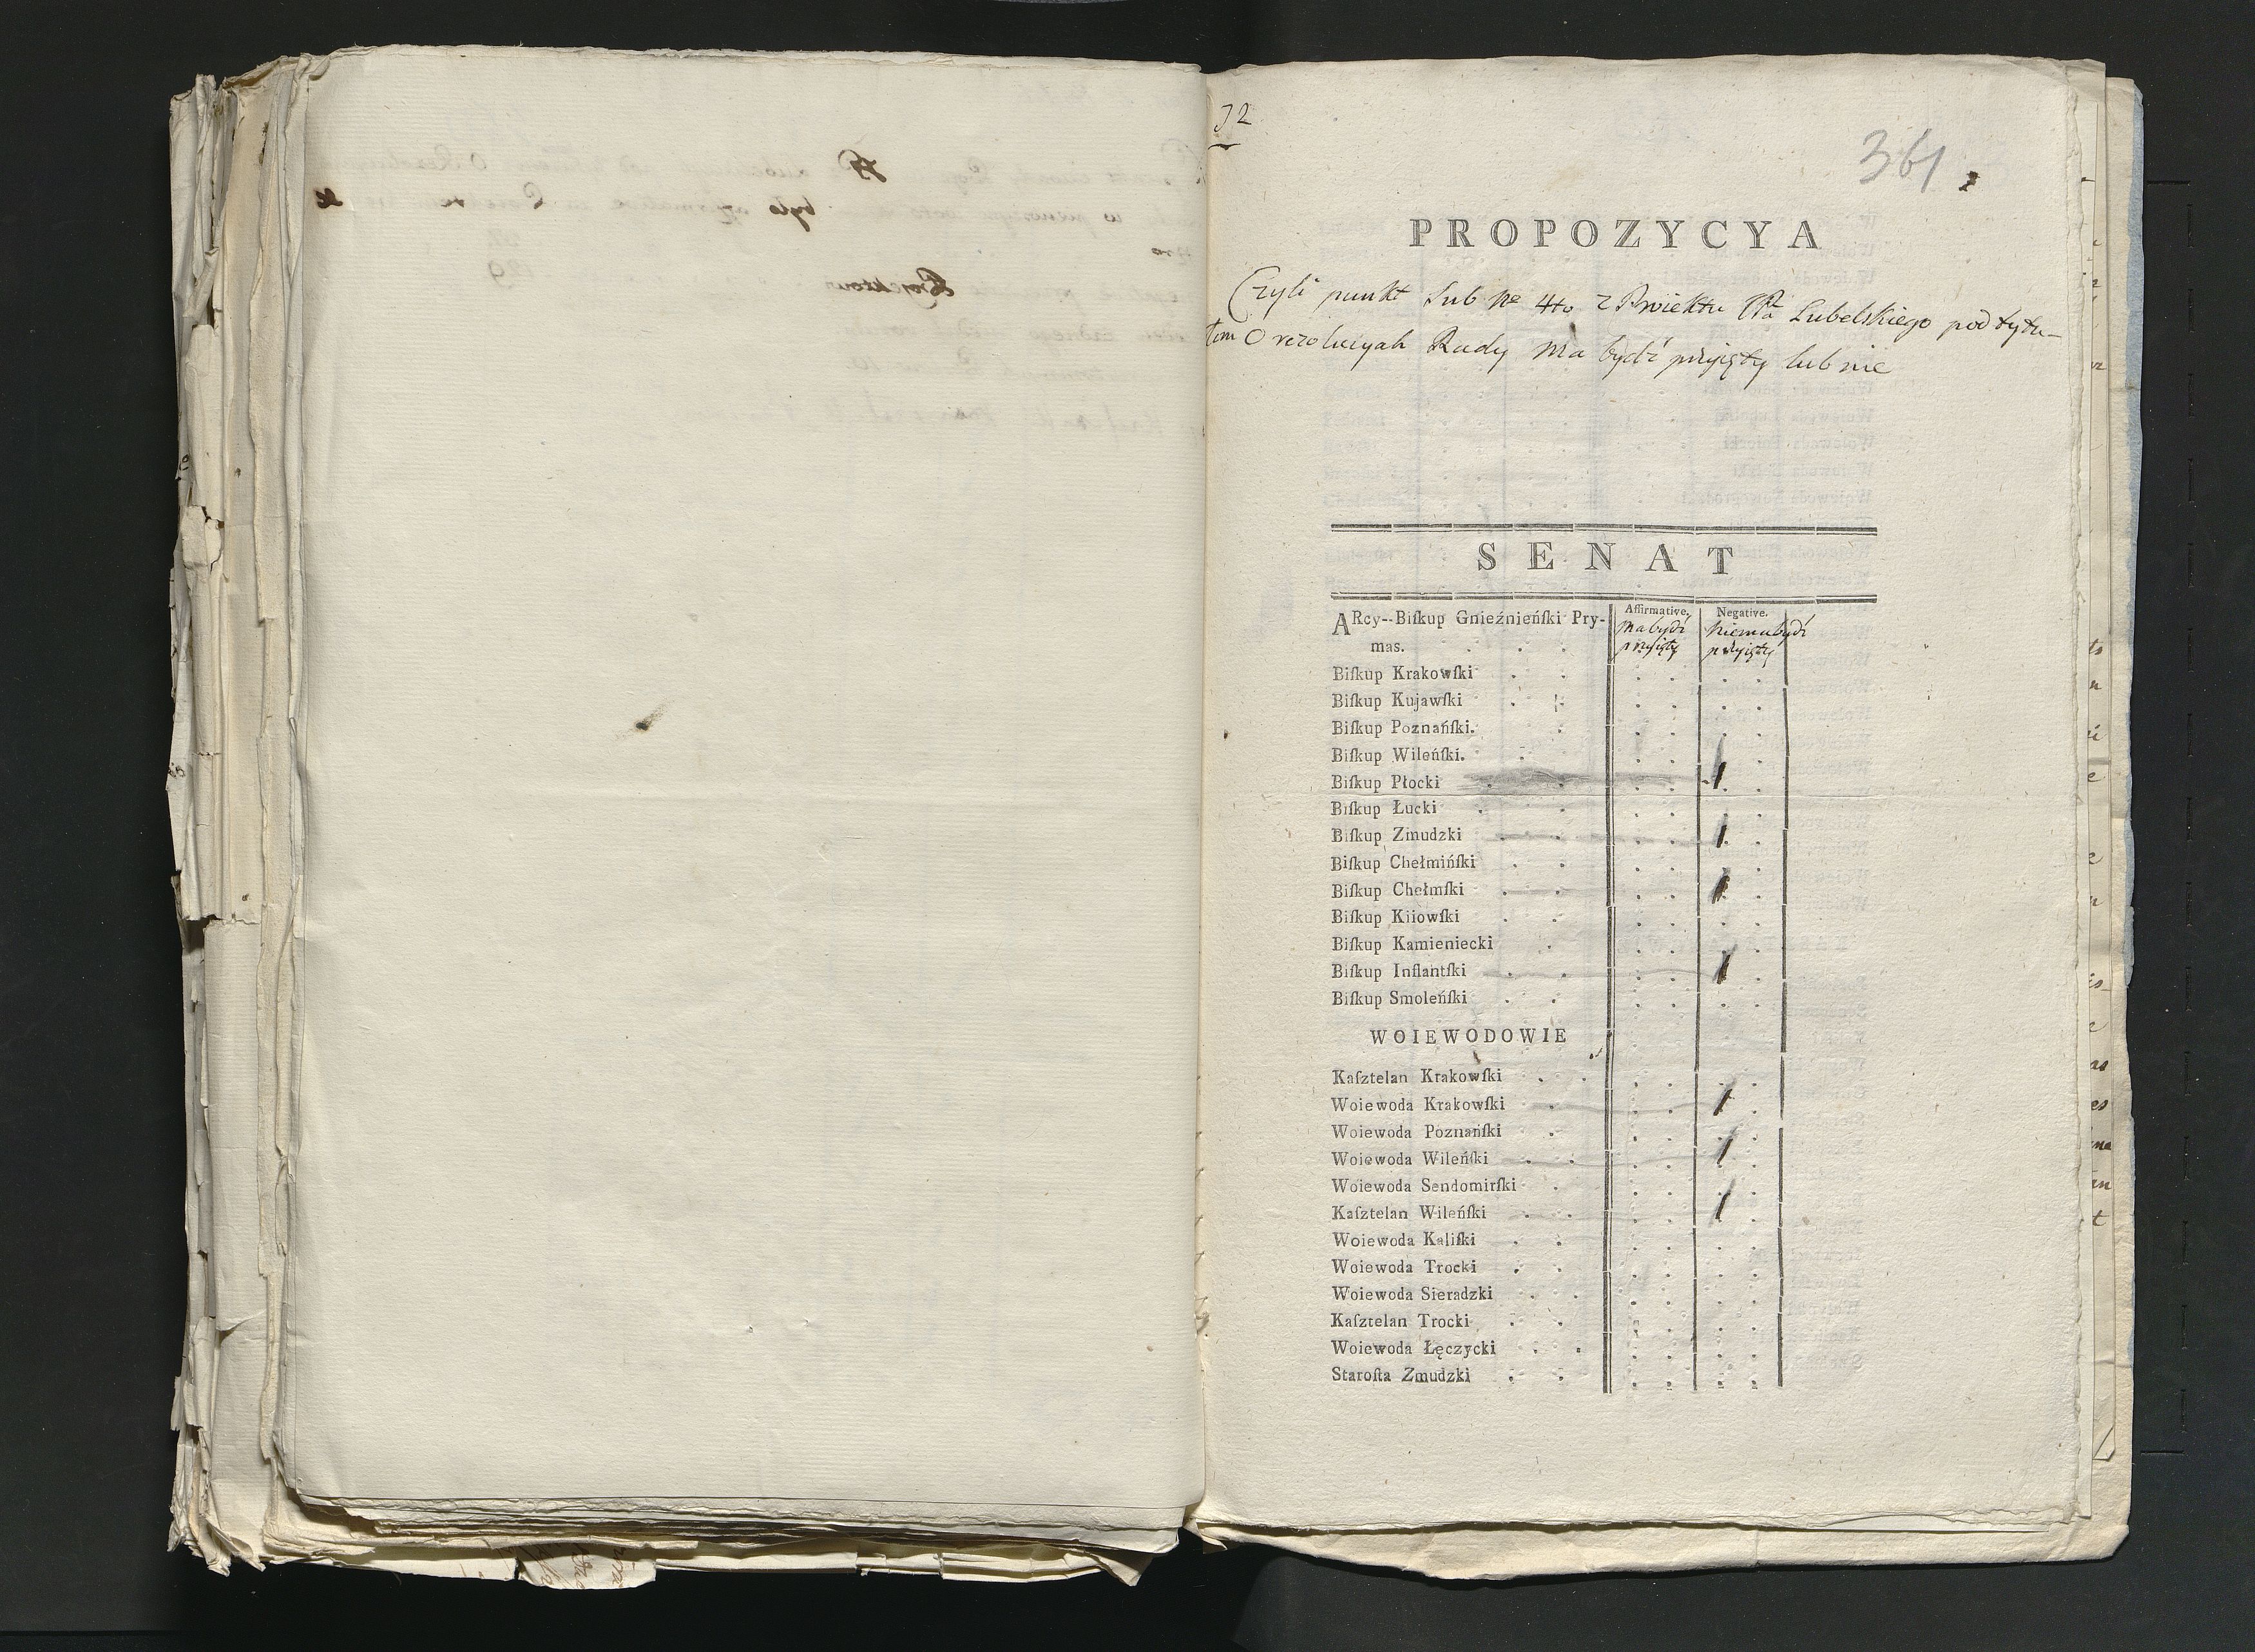 J2
361
PROPOZYCYA
Czyli punkt Sub No 4to z Proiektu Lubelskiego pod tytu-
łem O rezolucyah Rady Ma bydź przyięty lub nie
SENAT
Affirmative. Negative.
ARcy--Biſkup Gnieźnieńſki Pry- Ma bydź Niema bydź
mas. przyięty przyięty
Biſkup Krakowſki
Biſkup Kujawſki
Biſkup Poznańſki.
Biſkup Wileńſki.
Biſkup Płocki 1
Biſkup Łucki
Biſkup Zmudzki 1
Biſkup Chełmińſki
Biſkup Chełmſki 1
Biſkup Kiiowſki
Biſkup Kamieniecki
Biſkup Inflantſki 1
Biſkup Smoleńſki
WOIEWODOWIE
Kaſztelan Krakowſki
Woiewoda Krakowſki 1
Woiewoda Poznańſki
Woiewoda Wileńſki 1
Woiewoda Sendomirſki
Kaſztelan Wileńſki 1
Woiewoda Kaliſki
Woiewoda Trocki
Woiewoda Sieradzki
Kaſztelan Trocki
Woiewoda Łęczycki
Staroſta Zmudzki